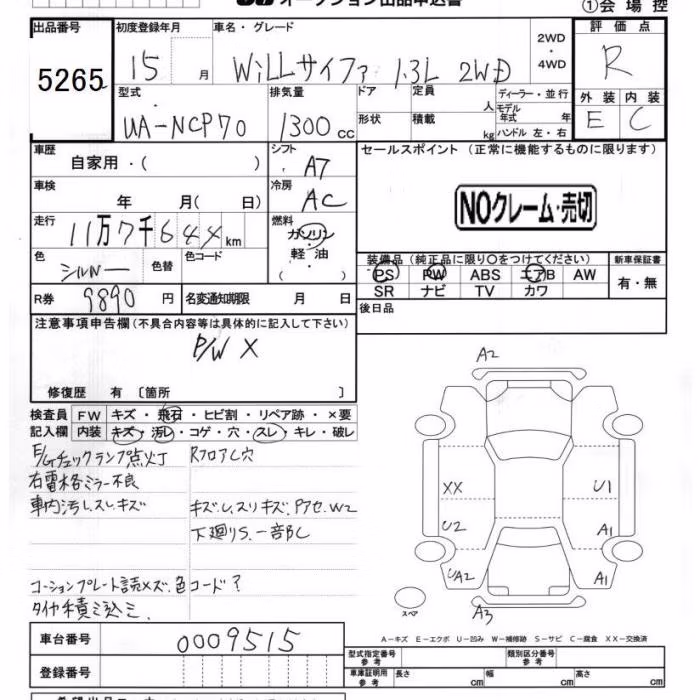 オークション出品申込書
①会場控
出品番号 初度登録年月 車名・グレード 2WD・4WD 評価点
5265 15 月 WiLLサイファ 1.3L 2WD R
型式 排気量 ドア 定員 人 ディーラー・並行 外装 内装
UA-NCP70 1300 cc 形状 積載 kg モデル年式 年 ハンドル 左・右 E C
車歴 自家用・( ) シフト A7 セールスポイント (正常に機能するものに限ります)
車検 年 月( 日) 冷房 AC
NOクレーム・売切
走行 11万7千644km 燃料 ガソリン・軽油 ( )
色 シルバー 色替 色コード
装備品 (純正品に限り○をつけてください) 新車保証書
PS PW ABS エアB AW 有・無
SR ナビ TV カワ
R券 9890 円 名変通知期限 月 日 後日品
注意事項申告欄 (不具合内容等は具体的に記入して下さい)
P/W X
修復歴 有 〔箇所 〕
検査員 FW キズ・飛石・ヒビ割・リペア跡・×要
記入欄 内装 キズ・汚レ・コゲ・穴・スレ・キレ・破レ
E/Gチェックランプ点灯 RフロアC穴
右電格ミラー不良
車内汚レスレキズ キズU.スリキズ.Pアセ.W2
下廻りS.一部C
コーションプレート読メズ.色コード?
タイヤ積ミ込ミ
A2
XX U1
U2 A1
UA2 A1
スペア A3
A-キズ E-エクボ U-凹み W-補修跡 S-サビ C-腐食 XX-交換済
車台番号 0009515
型式指定番号 参考 類別区分番号 参考
登録番号
車庫証明用 参考 長さ cm 幅 cm 高さ cm